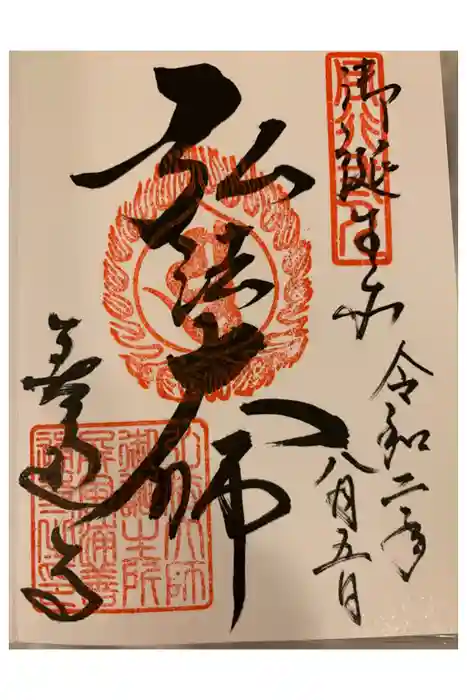 御誕生所
令和二年
八月五日
弘法大師
善通寺
弘法大師
御誕生所
屏風浦善
通寺